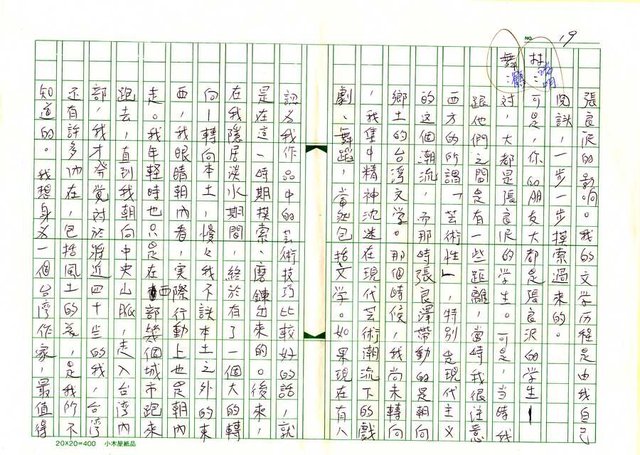 NO. 19
張良澤的影響。我的文學歷程是由我自己
閱讀,一步一步摸索過來的。
林:可是,你的朋友大都是張良澤的學生!
舞:對,大都是張良澤的學生。可是,當時我
跟他們之間是有一些距離,當時我很注意
西方的所謂「藝術性」,特別是現代主義
的這個潮流,而那時張良澤帶動的是朝向
鄉土的台灣文學。那個時候,我尚未轉向
,我集中精神沈迷在現代藝術潮流下的戲
劇、舞蹈,當然包括文學。如果現在有人
認為我作品中的藝術技巧比較好的話,就
是在這一時期摸索、磨鍊出來的。後來,
在我隱居淡水期間,終於有了一個大的轉
向——轉向本土,慢慢我不談本土之外的東
西,我眼睛朝內看,實際行動上也是朝內
走。我年輕時也只是在西部幾個城市跑來
跑去,直到我朝向中央山脈,走入台灣內
部,我才發覺對於將近四十歲的我,台灣
還有許多內在,包括風土的美,是我所不
知道的。我想身為一個台灣作家,最值得
20×20=400 小木屋紙品